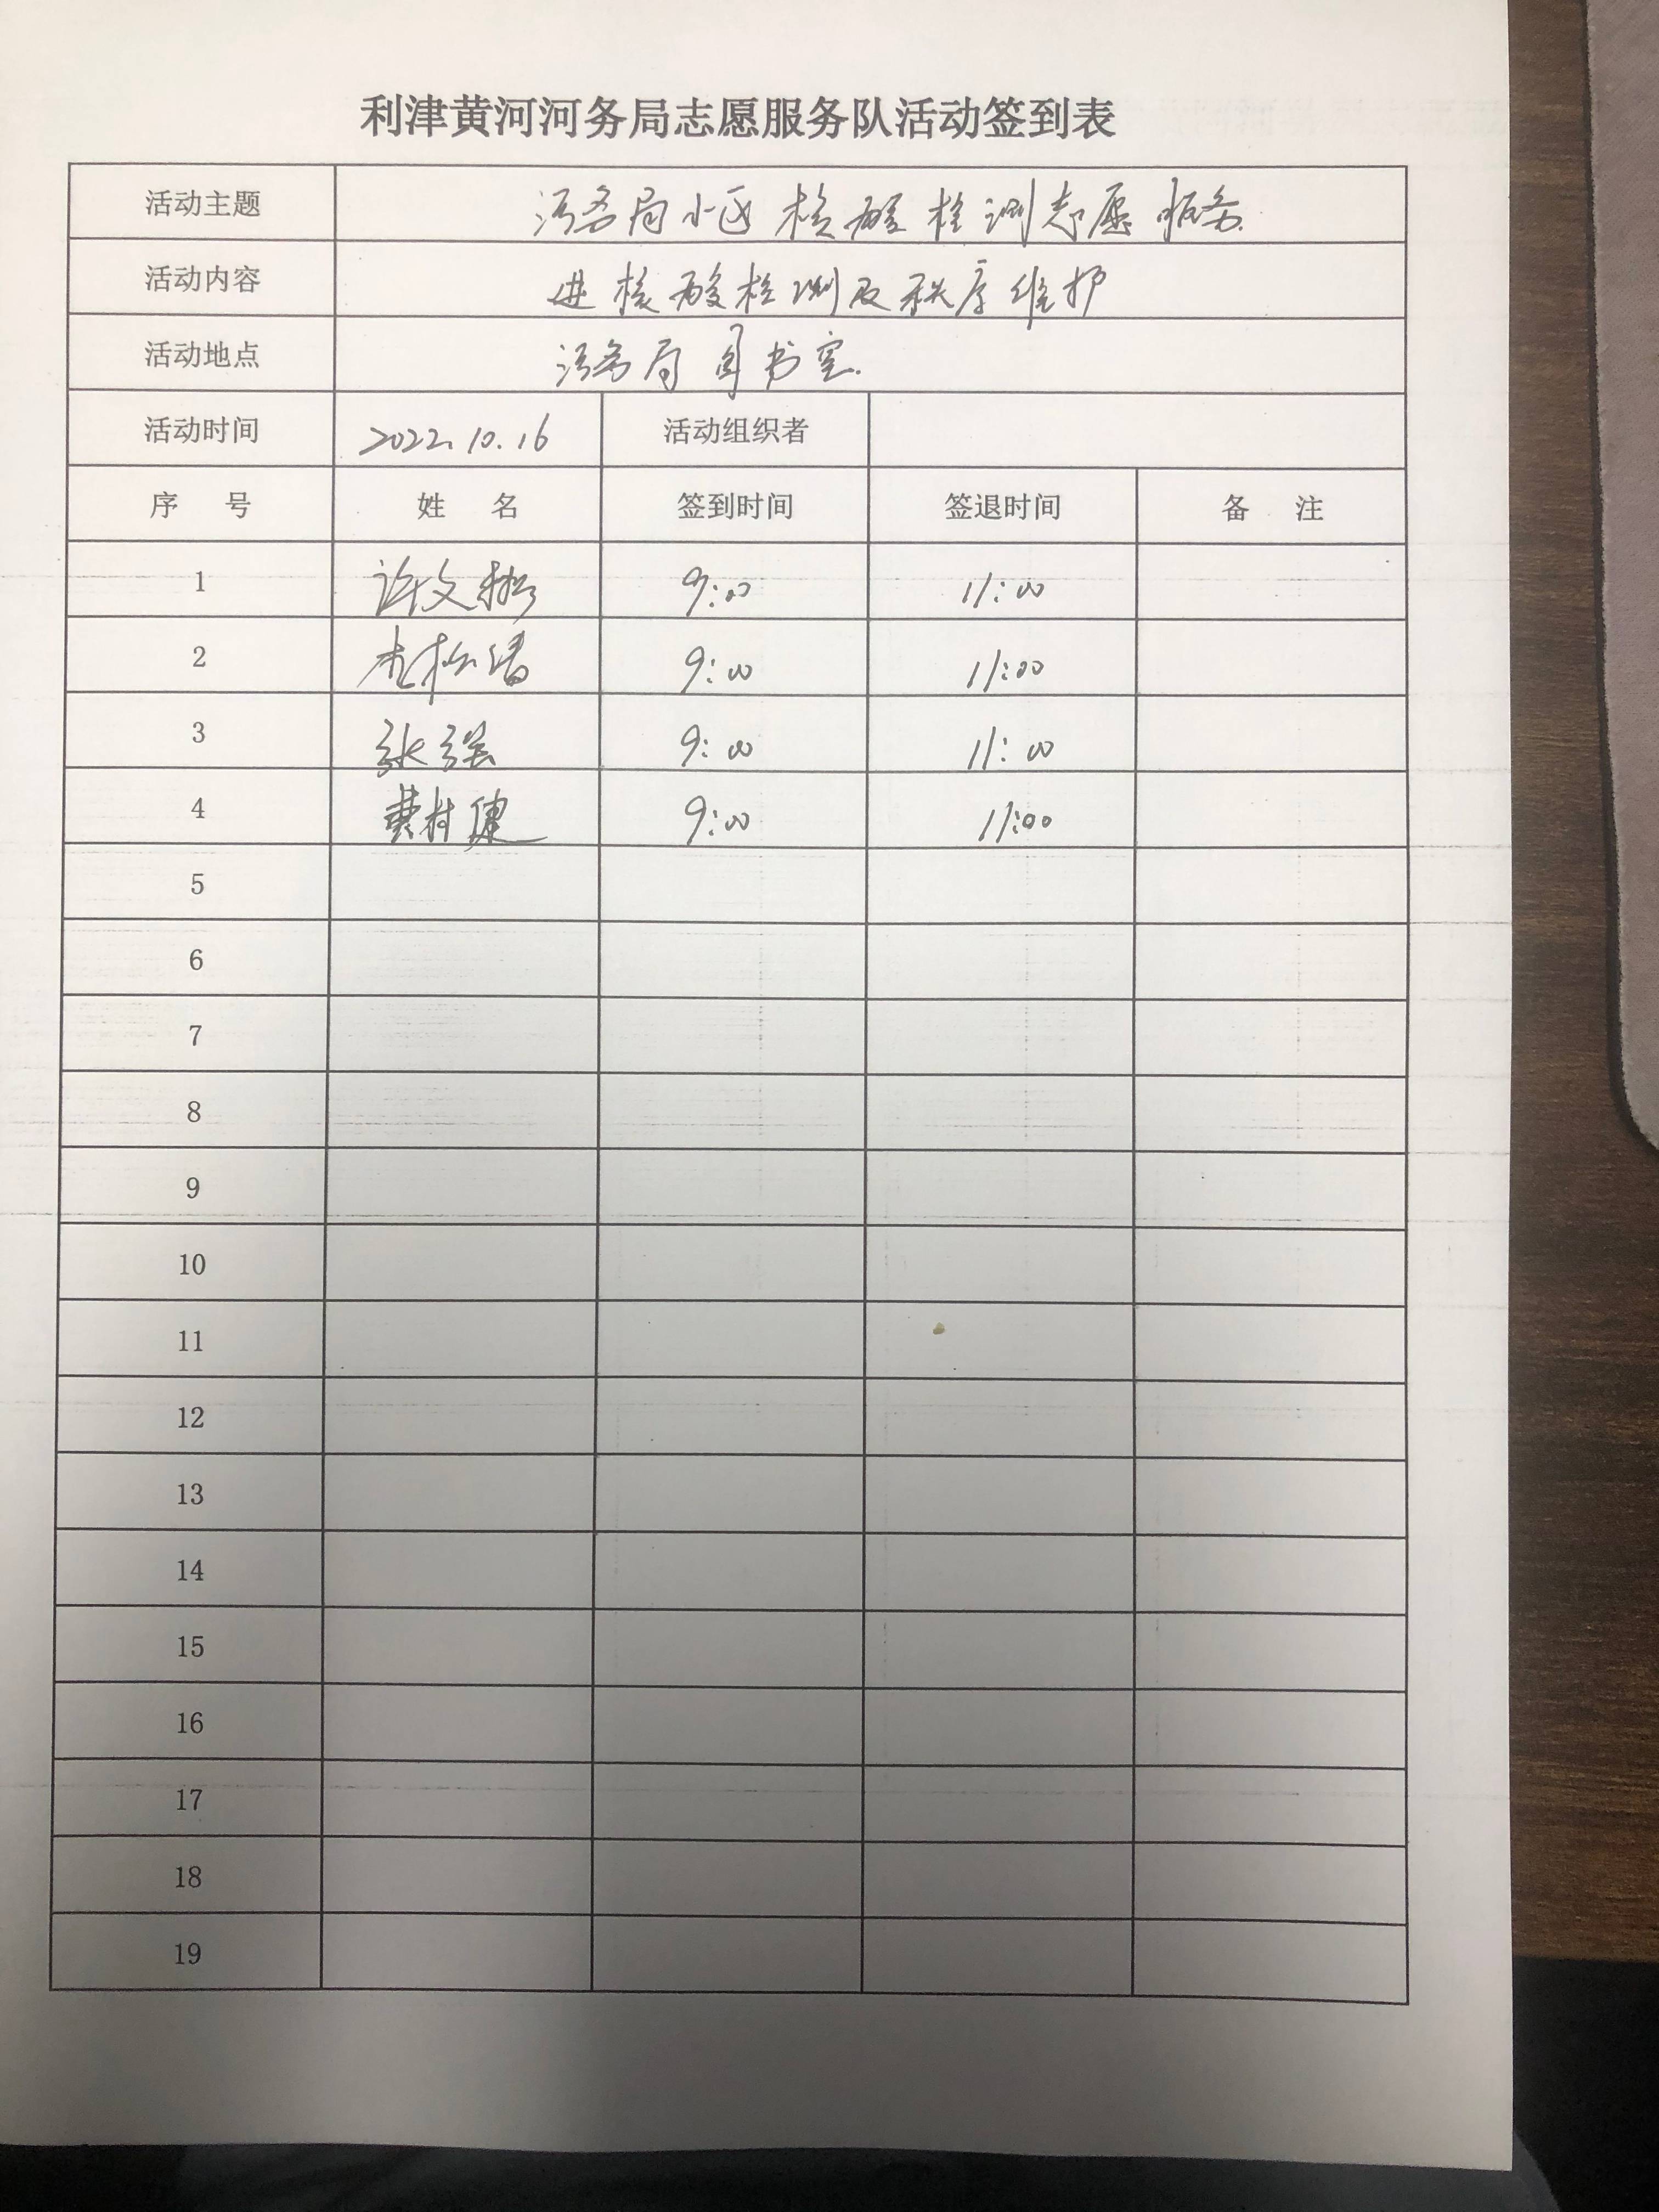 利津黄河河务局志愿服务队活动签到表
活动主题 河务局小区核酸检测志愿服务
活动内容 进核酸检测及秩序维护
活动地点 河务局图书室
活动时间 2022.10.16 活动组织者
序 号 姓 名 签到时间 签退时间 备 注
1 许文 9:00 11:00
2 9:00 11:00
3 张强 9:00 11:00
4 健 9:00 11:00
5
6
7
8
9
10
11
12
13
14
15
16
17
18
19